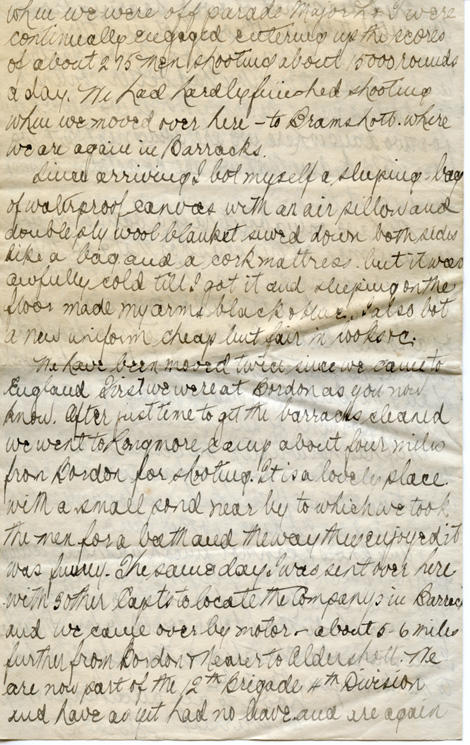 when we were off parade Major L & I were
continually engaged entering up the scores
of about 275 men, shooting about 5000 rounds
a day. We had hardly finished shooting
when we moved over here - to Bramshott. where
we are again in Barracks.
Since arriving I bot myself a sleeping-bag
of waterproof canvas with an air pillow and
double ply wool blanket sewed down both sides
like a bag and a cork mattress. but it was
awfully cold till I got it and sleeping on the
floor made my arms black & blue. I also bot
a new uniform, cheap but fair in looks &c.
We have been moved twice since we came to
England. First we were at Bordon as you now
know. After just time to get the barracks cleaned
we went to Longmore camp about four miles
from Bordon for shooting. It is a lovely place
with a small pond near by to which we took
the men for a bath and the way they enjoyed it
was funny. The same day I was sent over here
with 3 other Capts to locate the Companys in Barracks
and we came over by motor - about 5-6 miles
further from Bordon & nearer to Aldershott. We
are now part of the 12th Brigade 4th Division
and have as yet had no leave and are again